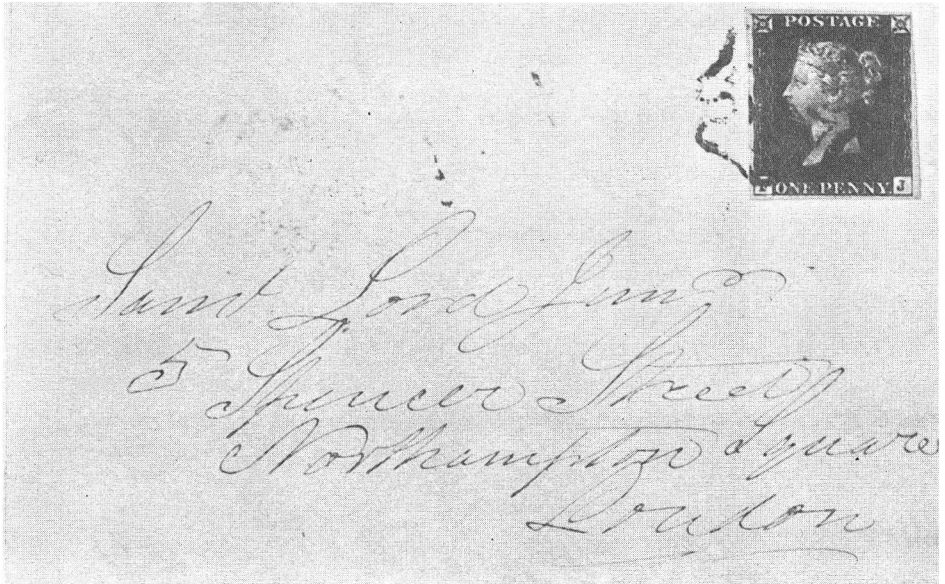 POSTAGE
ONE PENNY J
Saml Lord Junr
5 Spencer Street
Northampton Square
London